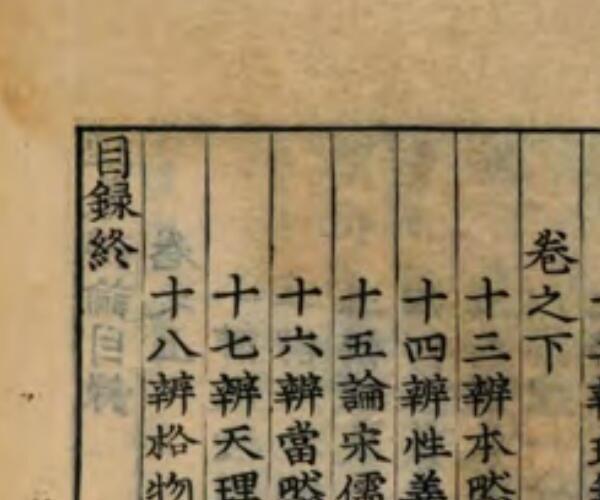 十二辨
卷之下
十三辨本然
十四辨性善
十五論宋儒
十六辨當然
十七辨天理
十八辨格物
目録終